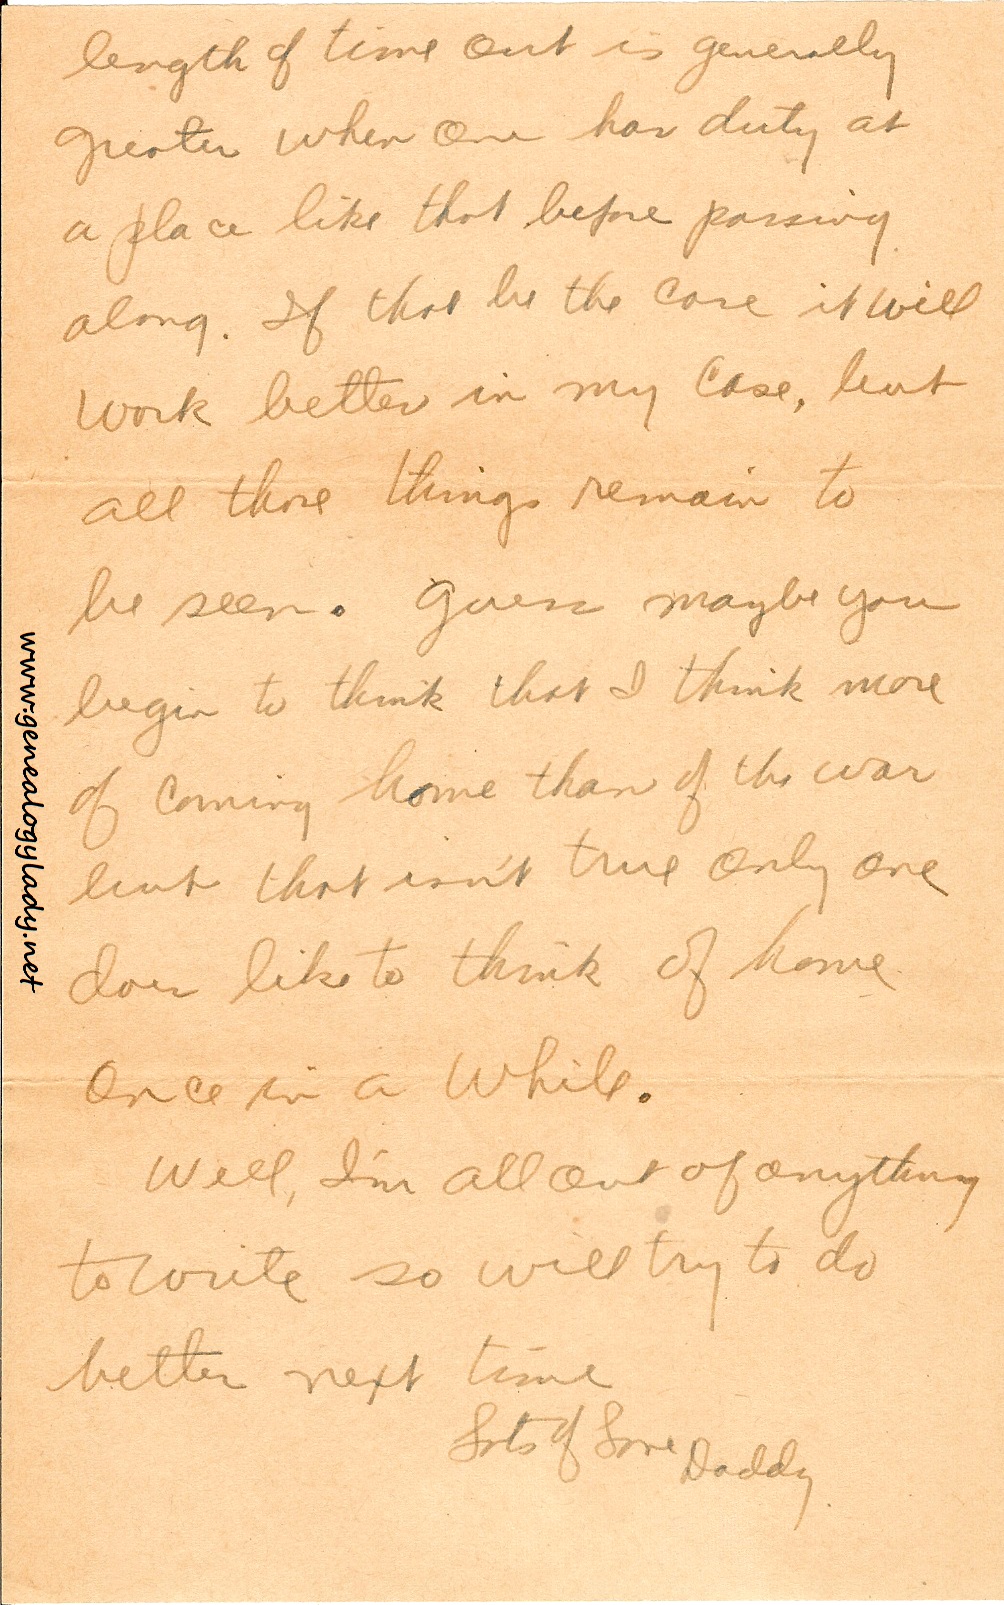 length of time out is generally
greater when one has duty at
a place like that before passing
along. If that be the case it will
work better in my case, but
all those things remain to
be seen. Guess maybe you
begin to think that I think more
of coming home than of the war
but that isn't true only one
does like to think of home
once in a while.
Well, I'm all out of anything
to write so will try to do
better next time
Lots of Love Daddy
www.genealogylady.net